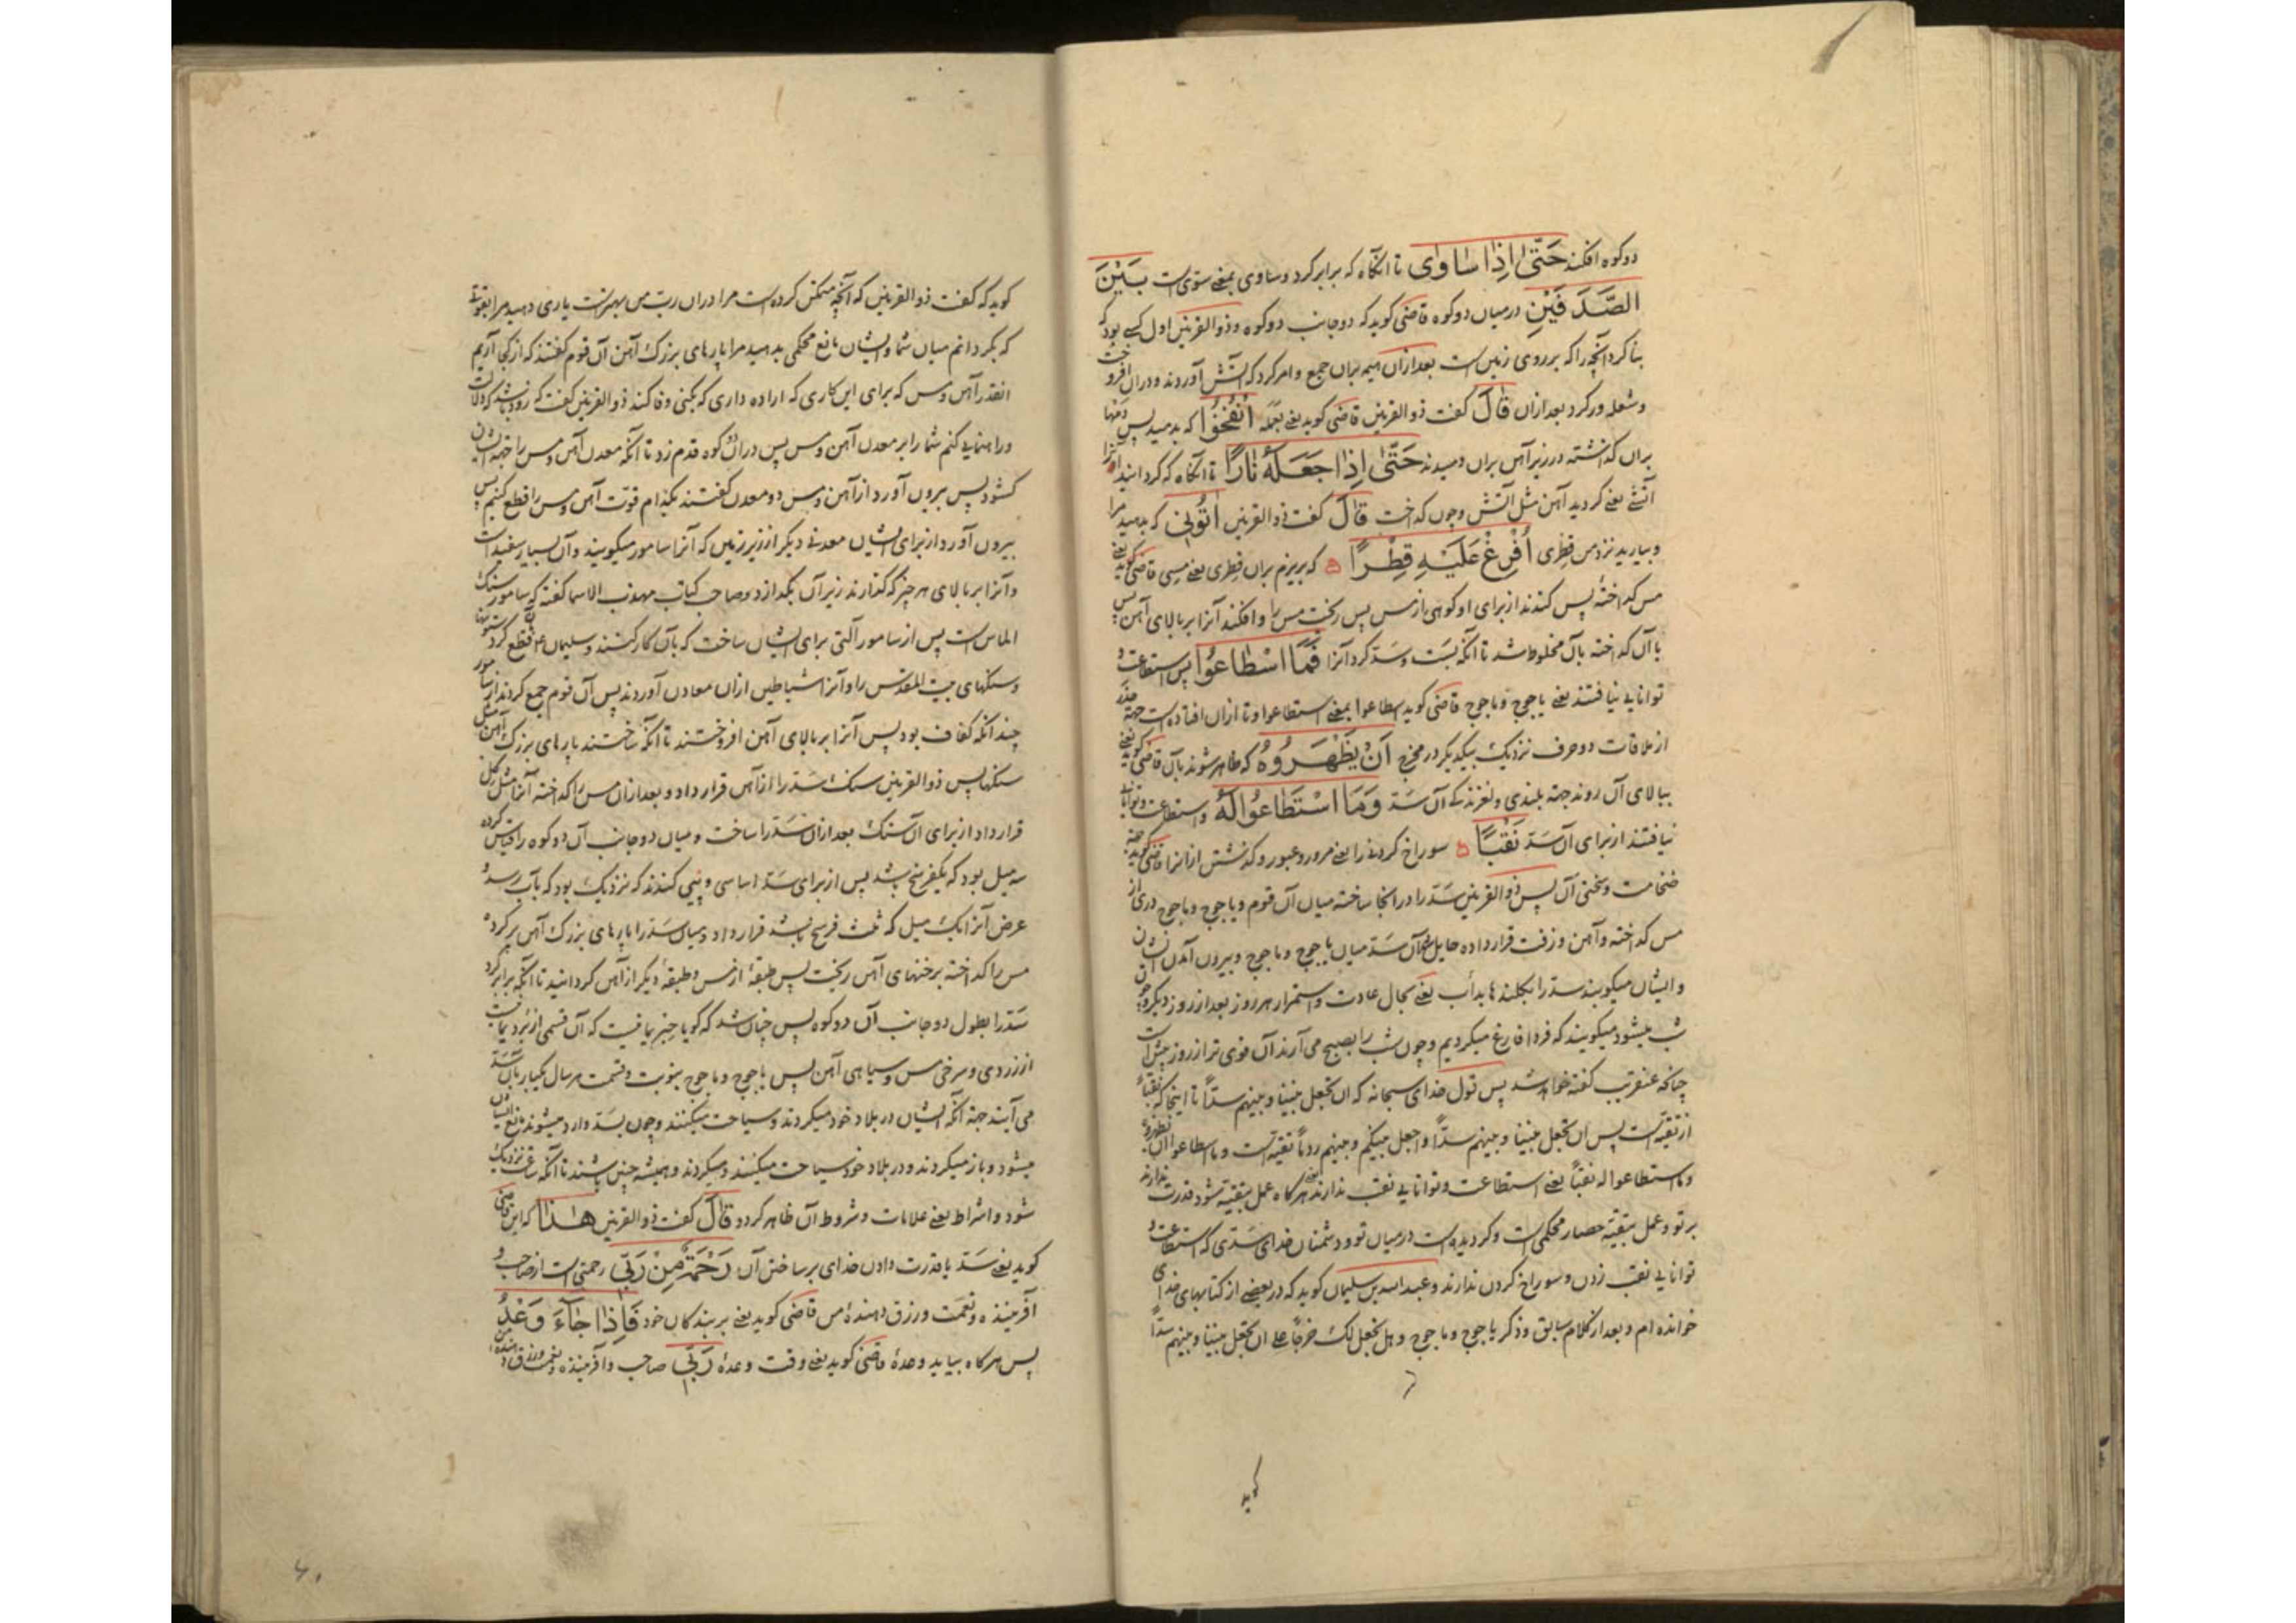 دو کوه افکند حَتّىٰ اِذٰا سٰاوىٰ تا آنگاه که برابر کرد و ساوی بمعنی ستوی است بَيْنَ
الصَّدَفَيْنِ در میان دو کوه قاضی کوید که دو جانب دو کوه و ذوالقرنین اول کسی بود که
بنا کرد آنچه را که بر روی زمین است بعد از آن هیمه بران جمع و امر کرد که آتش آوردند و دران افروخت
و شعله ور کرد بعد ازان قٰالَ کفت ذوالقرنین قاضی کوید یعنی بعمله اُنْفُخُوا که بدمید پس دمها
بران کذاشته در زیر آهن بران دمیدند حَتّىٰ اِذٰا جَعَلَهُ نٰارًا تا آنکاه که کردانید آنرا
آتشی یعنی کردید آهن مثل آتش و چون کداخت قٰالَ کفت ذوالقرنین اٰتُونِی که بدهید مرا
و بیارید نزد من قطری اُفْرِغْ عَلَيْهِ قِطْرًا که بریزم بران قطری یعنی مسی قاضی کوید یعنی
مس کداخته پس کندند از برای او کوهی از مس پس ریخت مس را و افکند آنرا بر بالای آهن پس
با آن کداخته بآن مخلوط شد تا آنکه بست و سد کرد آنرا فَمَا اسْطٰاعُوا پس استطاعت و
توانایی نیافتند یعنی یاجوج و ماجوج قاضی کوید اسطاعوا بمعنی استطاعوا و تا ازان افتاده است جهة حذر
از ملاقات دو حرف نزدیک بیکدیکر در مخرج اَنْ يَظْهَرُوهُ که ظاهر شوند بآن قاضی کوید یعنی
ببالای آن روند جهة بلندی و لغزندکی آن سد وَمَا اسْتَطٰاعُوا لَهُ و استطاعت و توانایی
نیافتند از برای آن سد نَقْبًا سوراخ کردنی را یعنی مرور و عبور و کذشتن از انرا قاضی کوید جهة
ضخامت و سختی آن پس ذوالقرنین سد را در انجا ساخته میان آن قوم و یاجوج و ماجوج دری از
مس کداخته و آهن و زفت قرار داده حایل آن سد میان یاجوج و ماجوج و بیرون آمدن ایشان
و ایشان میکوبند سد را بکلندها بدأب یعنی بحال عادت و استمرار هر روز بعد از روز دیکر و چون
شب میشود میکویند که فردا فارغ میکردیم و چون شب را بصبح می آرند آن قوی تر از روز پیش است
چنانچه عنقریب کفته خواهد شد پس قول خدای سبحانه که ان تجعل بیننا و بینهم سدّاً تا اینجا که نقباً
از تقیّه است پس ان تجعل بیننا و بینهم سدّاً و اجعل بینکم و بینهم ردماً تقیّه است و ما اسطاعوا ان یظهروه
و ما استطاعوا له نقباً یعنی استطاعت و توانایی نقب ندارند هرکاه عمل بتقیّه شود قدرت ندارند
بر تو و عمل بتقیّه حصار محکمی است و کردیده است در میان تو و دشمنان خدای سدّی که استطاعت و
توانایی نقب زدن و سوراخ کردن ندارند و عبدالله بن سلیمان کوید که در بعضی از کتابهای خدای
خوانده ام و بعد از کلام سابق و ذکر یاجوج و ماجوج و هل نجعل لک خرجاً علی ان تجعل بیننا و بینهم سدّاً
کوید
کوید که کفت ذوالقرنین که آنچه متمکن کرده است مرا دران رب من بهتر است یاری دهید مرا بقوتی
که بکردانم میان شما و ایشان مانع محکمی بدهید مرا پارهای بزرک آهن آن قوم کفتند که از کجا آریم
انقدر آهن و مس که برای این کاری که اراده داری که بکنی وفا کند ذوالقرنین کفت که زود باشد که دلالت
و راهنمایی کنم شما را بر معدن آهن و مس پس دران دو کوه قدم زد تا آنکه معدن آهن و مس را جهة ایشان
کشود پس بیرون آورد از آهن و مس دو معدن کفتند بکدام قوّت آهن و مس را قطع کنیم پس
بیرون آورد از برای ایشان معدنی دیکر از زیر زمین که آنرا سامور میکویند و آن بسیار سفید است
و آنرا بر بالای هر چیز که کذارند زیر آن بکدازد و صاحب کتاب مهذب الاسما کفته که سامور سنک
الماس است پس از سامور آلتی برای ایشان ساخت که بآن کار کنند و سلیمان ع بآن قطع کرد ستونها
و سنکهای بیت المقدس را و آنرا شیاطین ازان معادن آوردند پس آن قوم جمع کردند از سامور
چندانکه کفاف بود پس آنرا بر بالای آهن افروختند تا آنکه ساختند پارهای بزرک آهن مثل
سنکها پس ذوالقرنین سنک سد را از آهن قرار داد و بعد ازان مس را کداخته آنرا مثل کل
قرار داد از برای آن سنک بعد ازان سد را ساخت و میان دو جانب آن دو کوه را قیاس کرده
سه میل بود که یکفرسخ باشد پس از برای سد اساسی و پیی کندند که نزدیک بود که بآب رسد و
عرض آنرا یک میل که ثلث فرسخ باشد قرار داد و میان سد را پارهای بزرک آهن پر کرده
مس را کداخته بر خنهای آهن ریخت پس طبقهٔ از مس و طبقهٔ دیکر از آهن کردانید تا آنکه برابر کرد
سد را بطول دو جانب آن دو کوه پس چنان شد که کویا حبر یمانیست که آن قسمی از برد یمانیست
از زردی و سرخی مس و سیاهی آهن پس یاجوج و ماجوج بنوبت و قسمت هر سال یکبار بآن سد
می آیند جهة آنکه ایشان در بلاد خود میکردند و سیاحت میکنند و چون بسد وارد میشوند مانع ایشان
میشود و باز میکردند و در بلاد خود سیاحت میکنند و میکردند و همیشه چنین باشند تا آنکه ساعت نزدیک
شود و اشراط یعنی علامات و شروط آن ظاهر کردد قٰالَ کفت ذوالقرنین هٰذٰا که این قاضی
کوید یعنی سد یا قدرت دادن خدای بر ساختن آن رَحْمَةٌ مِنْ رَبِّی رحمتی است از صاحب و
آفریننده و نعمت و رزق دهندهٔ من قاضی کوید یعنی بر بندکان خود فَاِذٰا جٰاءَ وَعْدُ
پس هرکاه بیاید وعدهٔ قاضی کوید یعنی وقت وعدهٔ رَبِّی صاحب و آفریننده و نعمت و رزق دهندهٔ من